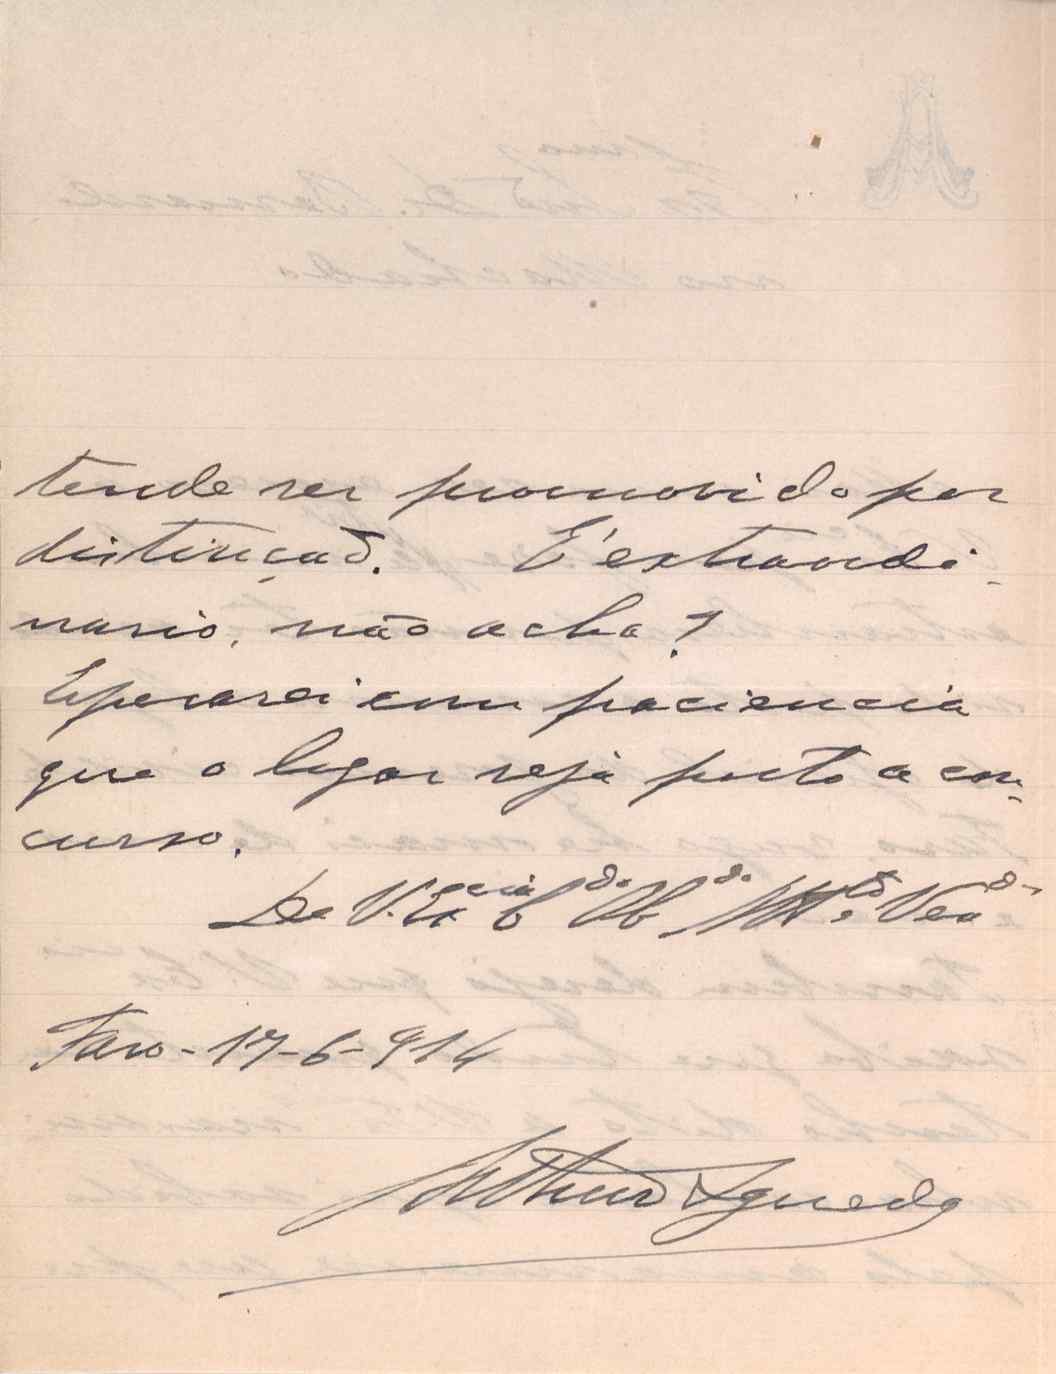 tende ser promovido por
distinção. E' extraordi-
nario, não acha?
Esperarei com paciencia
que o logar seja posto a con-
curso.
De V. Ex.cia
Faro - 17-6-914
Arthur Aguedo